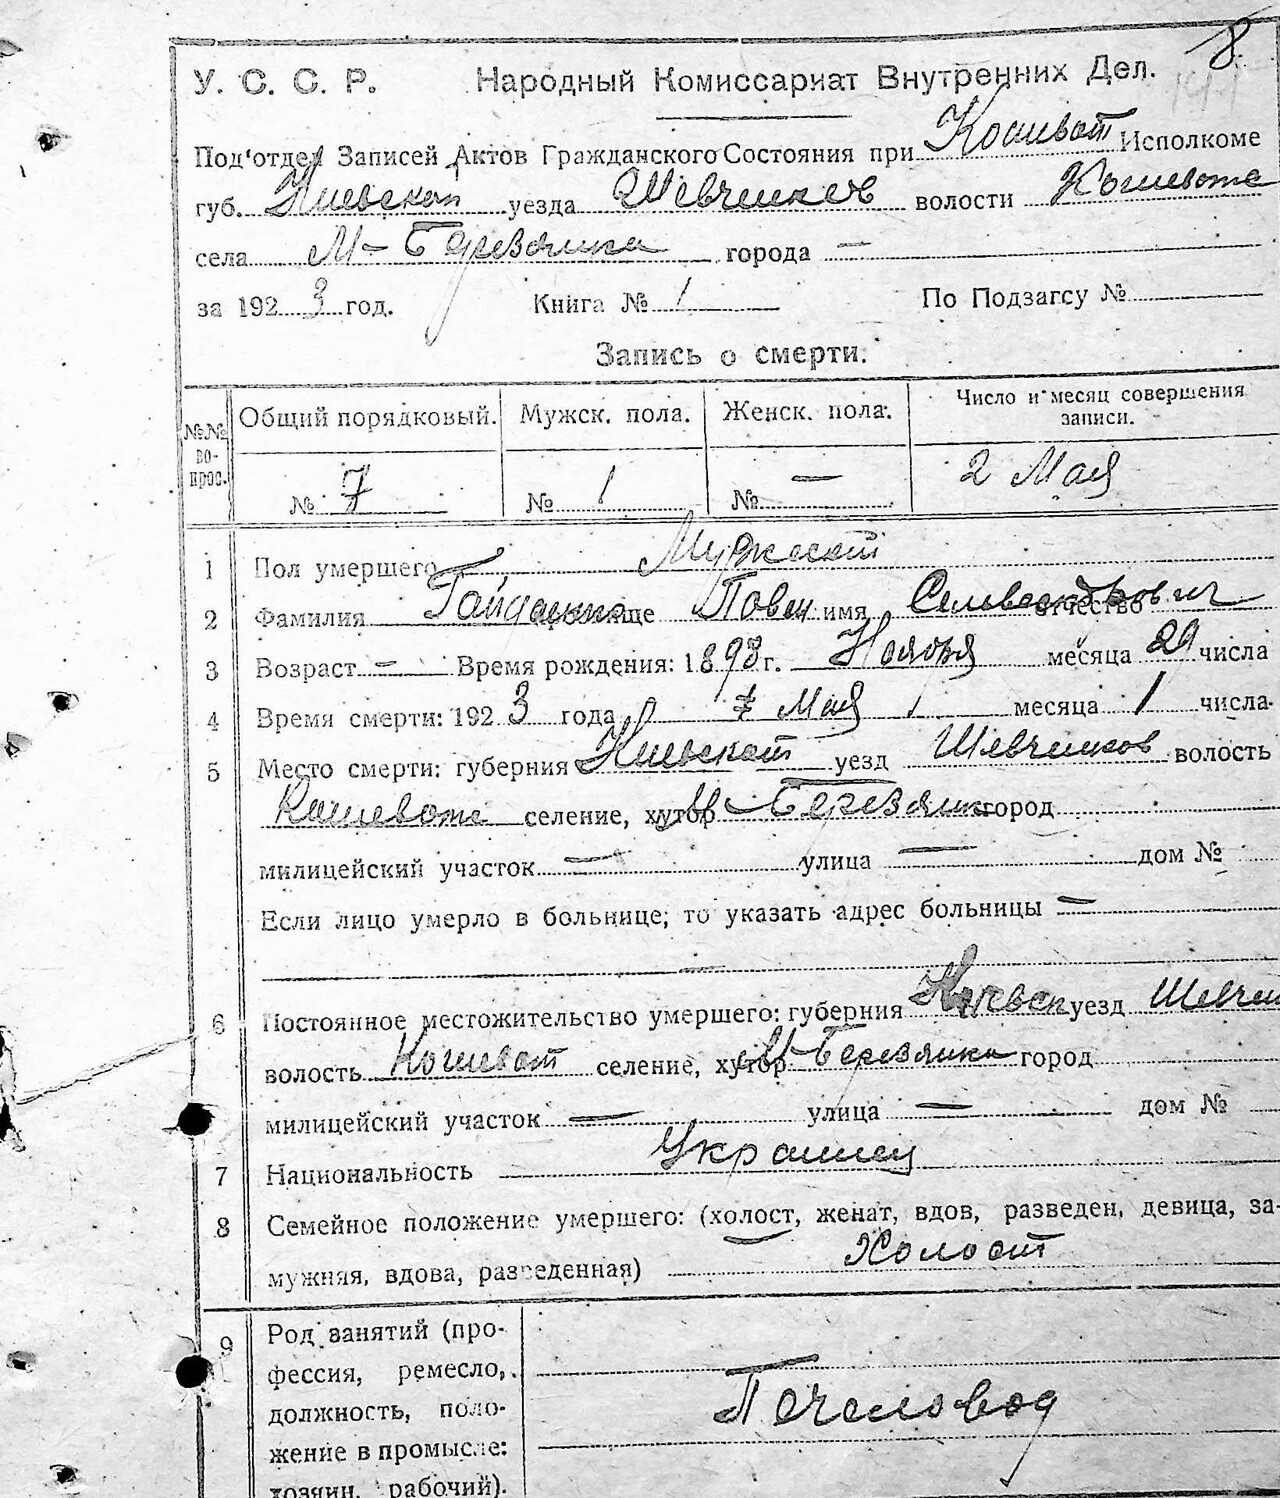 8
У. С. С. Р. Народный Комиссариат Внутренних Дел.
Под'отдел Записей Актов Гражданского Состояния при Кошеват Исполкоме
губ. Киевской уезда Шевченков волости Кошевате
села М-Березянка города —
за 1923 год. Книга № 1 По Подзагсу №
Запись о смерти.
№№ вопрос. Общий порядковый. Мужск. пола. Женск. пола. Число и месяц совершения записи.
№ 7 № 1 № — 2 Мая
1 Пол умершего Мужской
2 Фамилия Гайдаенко Павел имя Селевестрович отчество
3 Возраст — Время рождения: 1893 г. Ноября месяца 29 числа
4 Время смерти: 1923 года Мая месяца 1 числа
5 Место смерти: губерния Киевской уезд Шевченков волость
Кошевате селение, хутор М-Березянка город
милицейский участок — улица — дом №
Если лицо умерло в больнице; то указать адрес больницы —
—
6 Постоянное местожительство умершего: губерния Киевск уезд Шевчен
волость Кошеват селение, хутор М-Березянка город
милицейский участок — улица — дом №
7 Национальность Украинец
8 Семейное положение умершего: (холост, женат, вдов, разведен, девица, за-
мужняя, вдова, разведенная) Холост
9 Род занятий (про-
фессия, ремесло,
должность, поло- Печеловод
жение в промысле:
хозяин, рабочий).